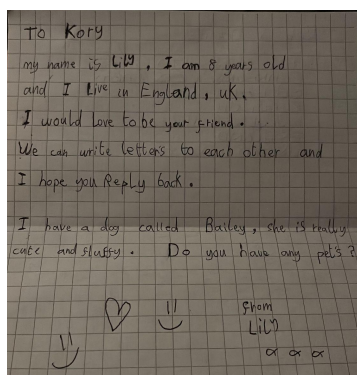 To Kory
my name is Lily, I am 8 years old
and I Live in England, uK.
I would Love to be your friend.
We can write letters to each other and
I hope you Reply back.
I have a dog called Bailey, she is really
cute and fluffy. Do you have any pet's?
from
Lily
x x x